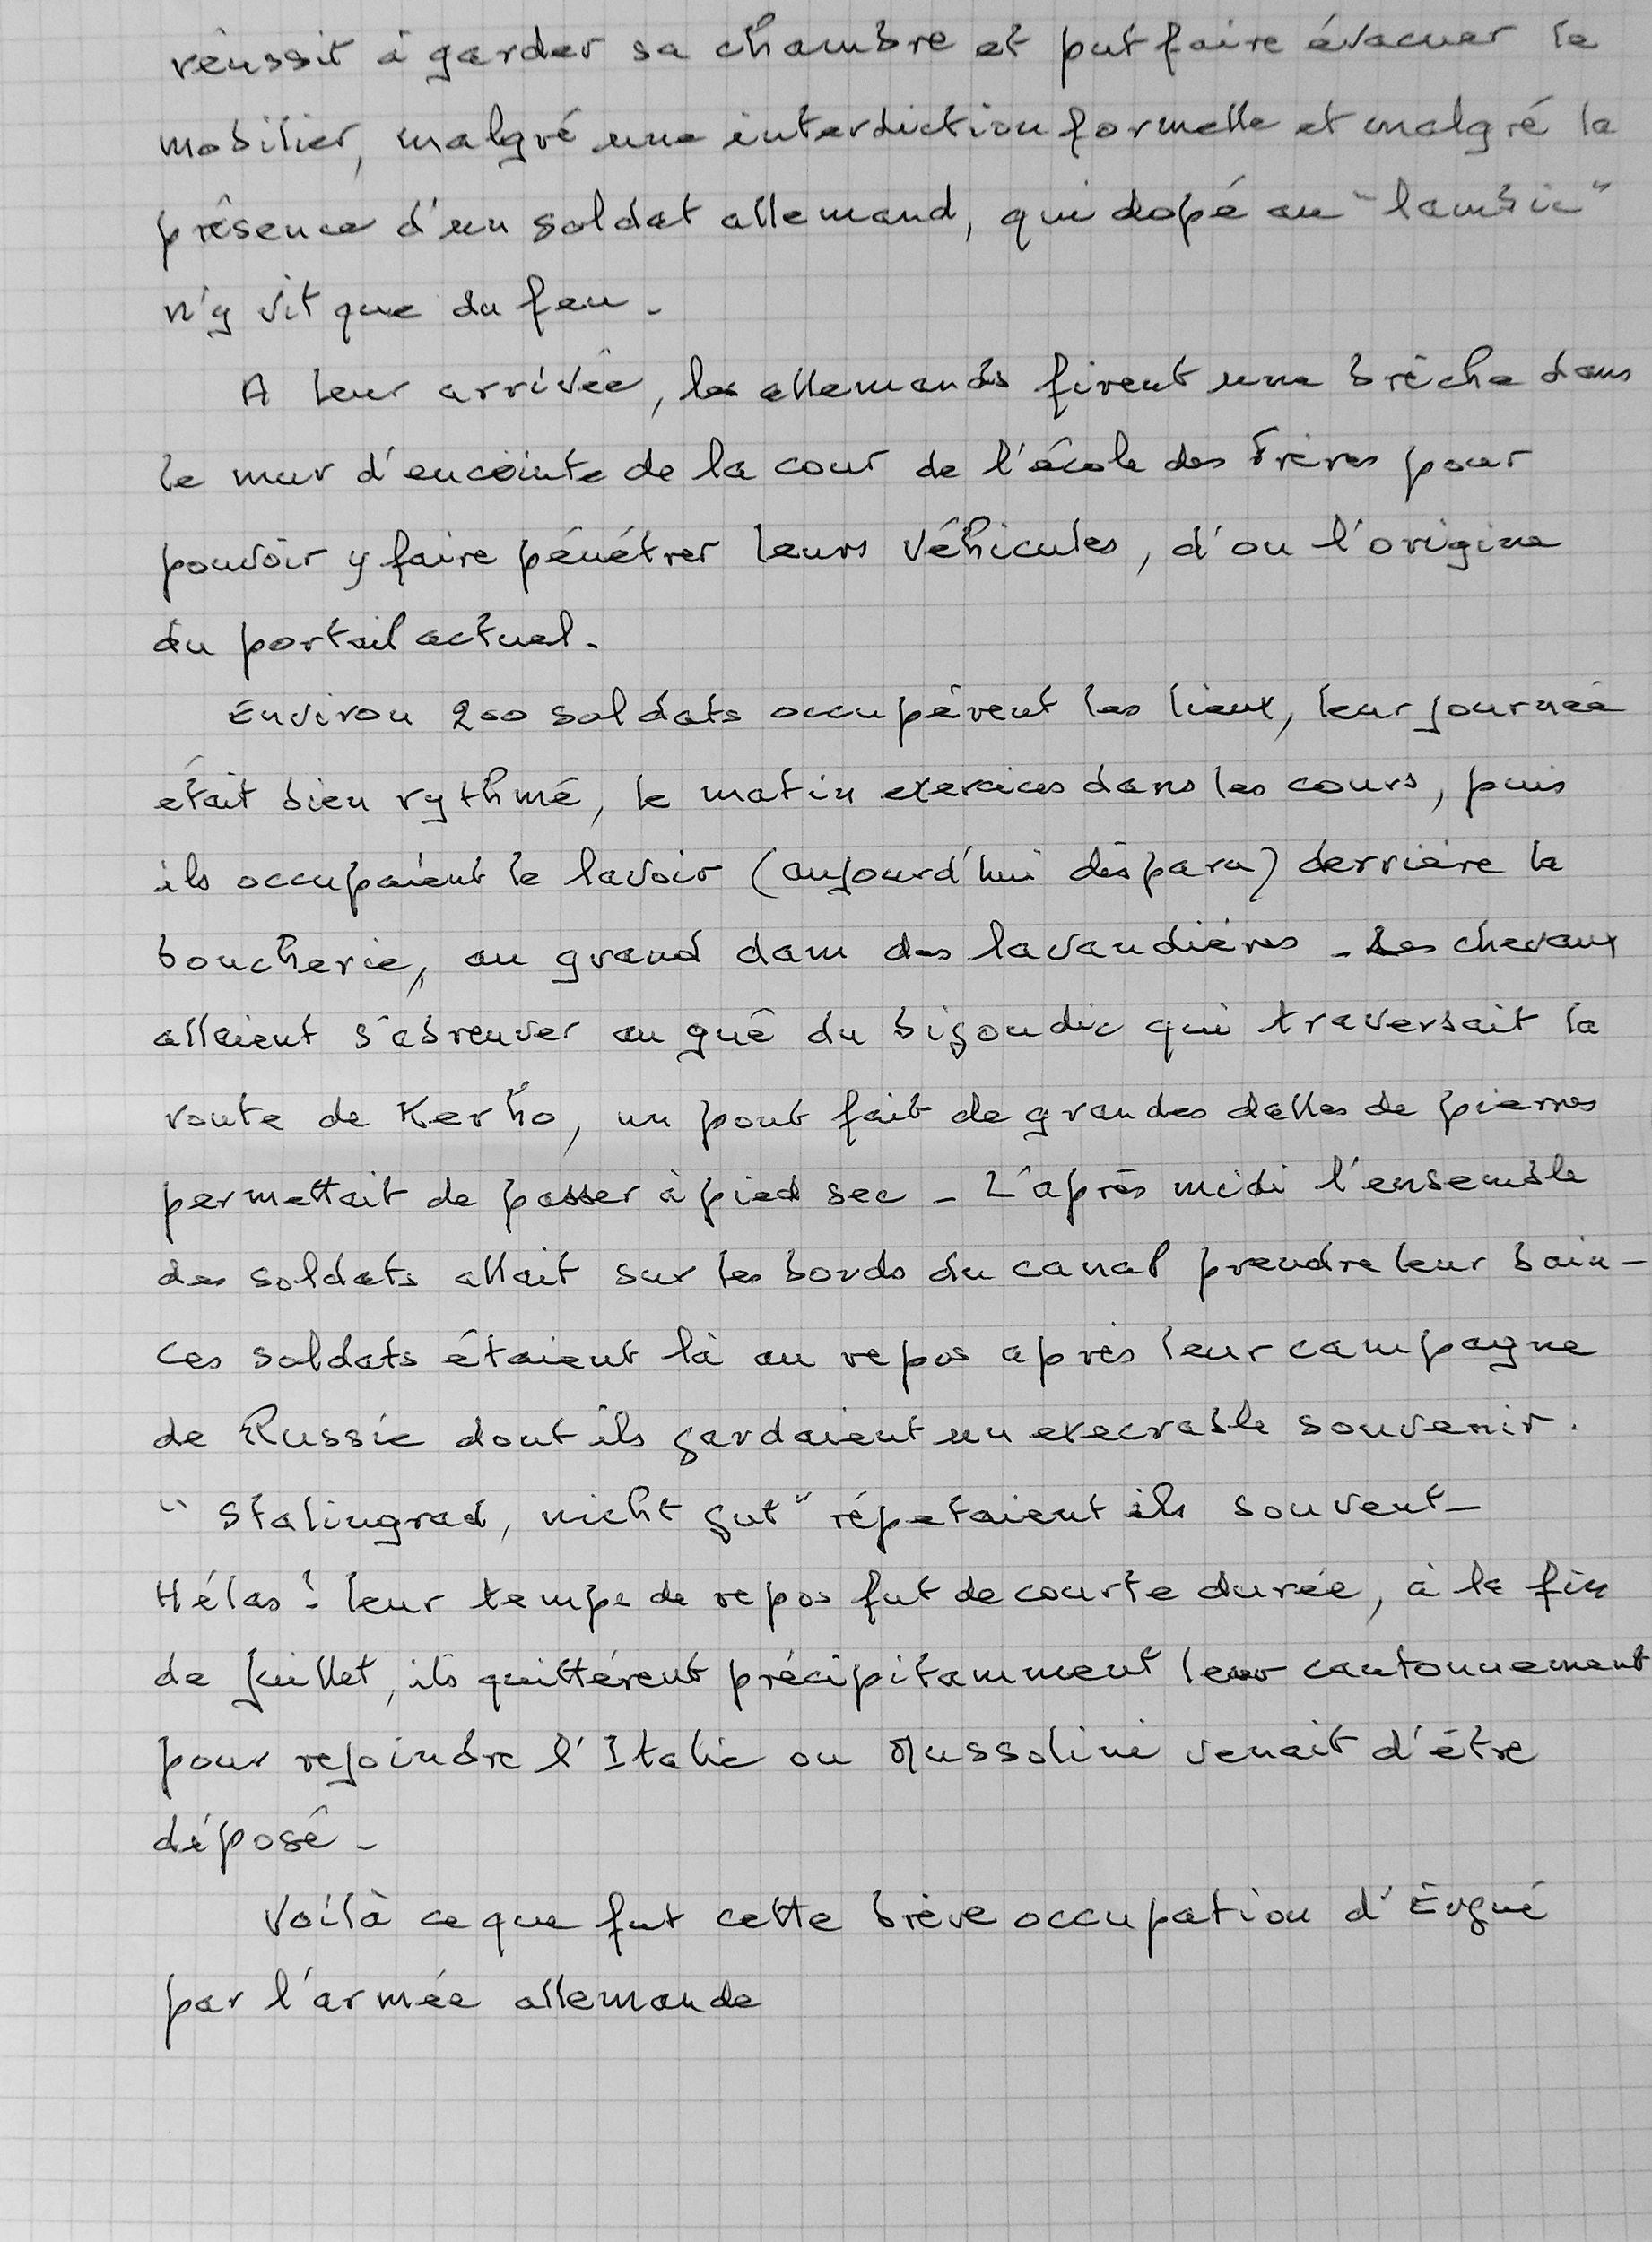 réussit à garder sa chambre et put faire évacuer le
mobilier, malgré une interdiction formelle et malgré la
présence d'un soldat allemand, qui dopé au "lambic"
n'y vit que du feu.
A leur arrivée, les allemands firent une brèche dans
le mur d'enceinte de la cour de l'école des Frères pour
pouvoir y faire pénétrer leurs véhicules, d'ou l'origine
du portail actuel.
Environ 200 soldats occupèrent les lieux, leur journée
était bien rythmé, le matin exercices dans les cours, puis
ils occupaient le lavoir (aujourd'hui disparu) derrière la
boucherie, au grand dam des lavandières - Les chevaux
allaient s'abreuver au gué du bigoudic qui traversait la
route de Kerho, un pont fait de grandes dalles de pierres
permettait de passer à pied sec - L'après midi l'ensemble
des soldats allait sur les bords du canal prendre leur bain -
Ces soldats étaient là au repos après leur campagne
de Russie dont ils gardaient un execrable souvenir.
"Stalingrad, nicht gut" répetaient ils souvent -
Hélas ! leur temps de repos fut de courte durée, à la fin
de Juillet, ils quittèrent précipitamment leur cantonnement
pour rejoindre l'Italie ou Mussolini venait d'être
déposé -
Voilà ce que fut cette brève occupation d'Evgué
par l'armée allemande